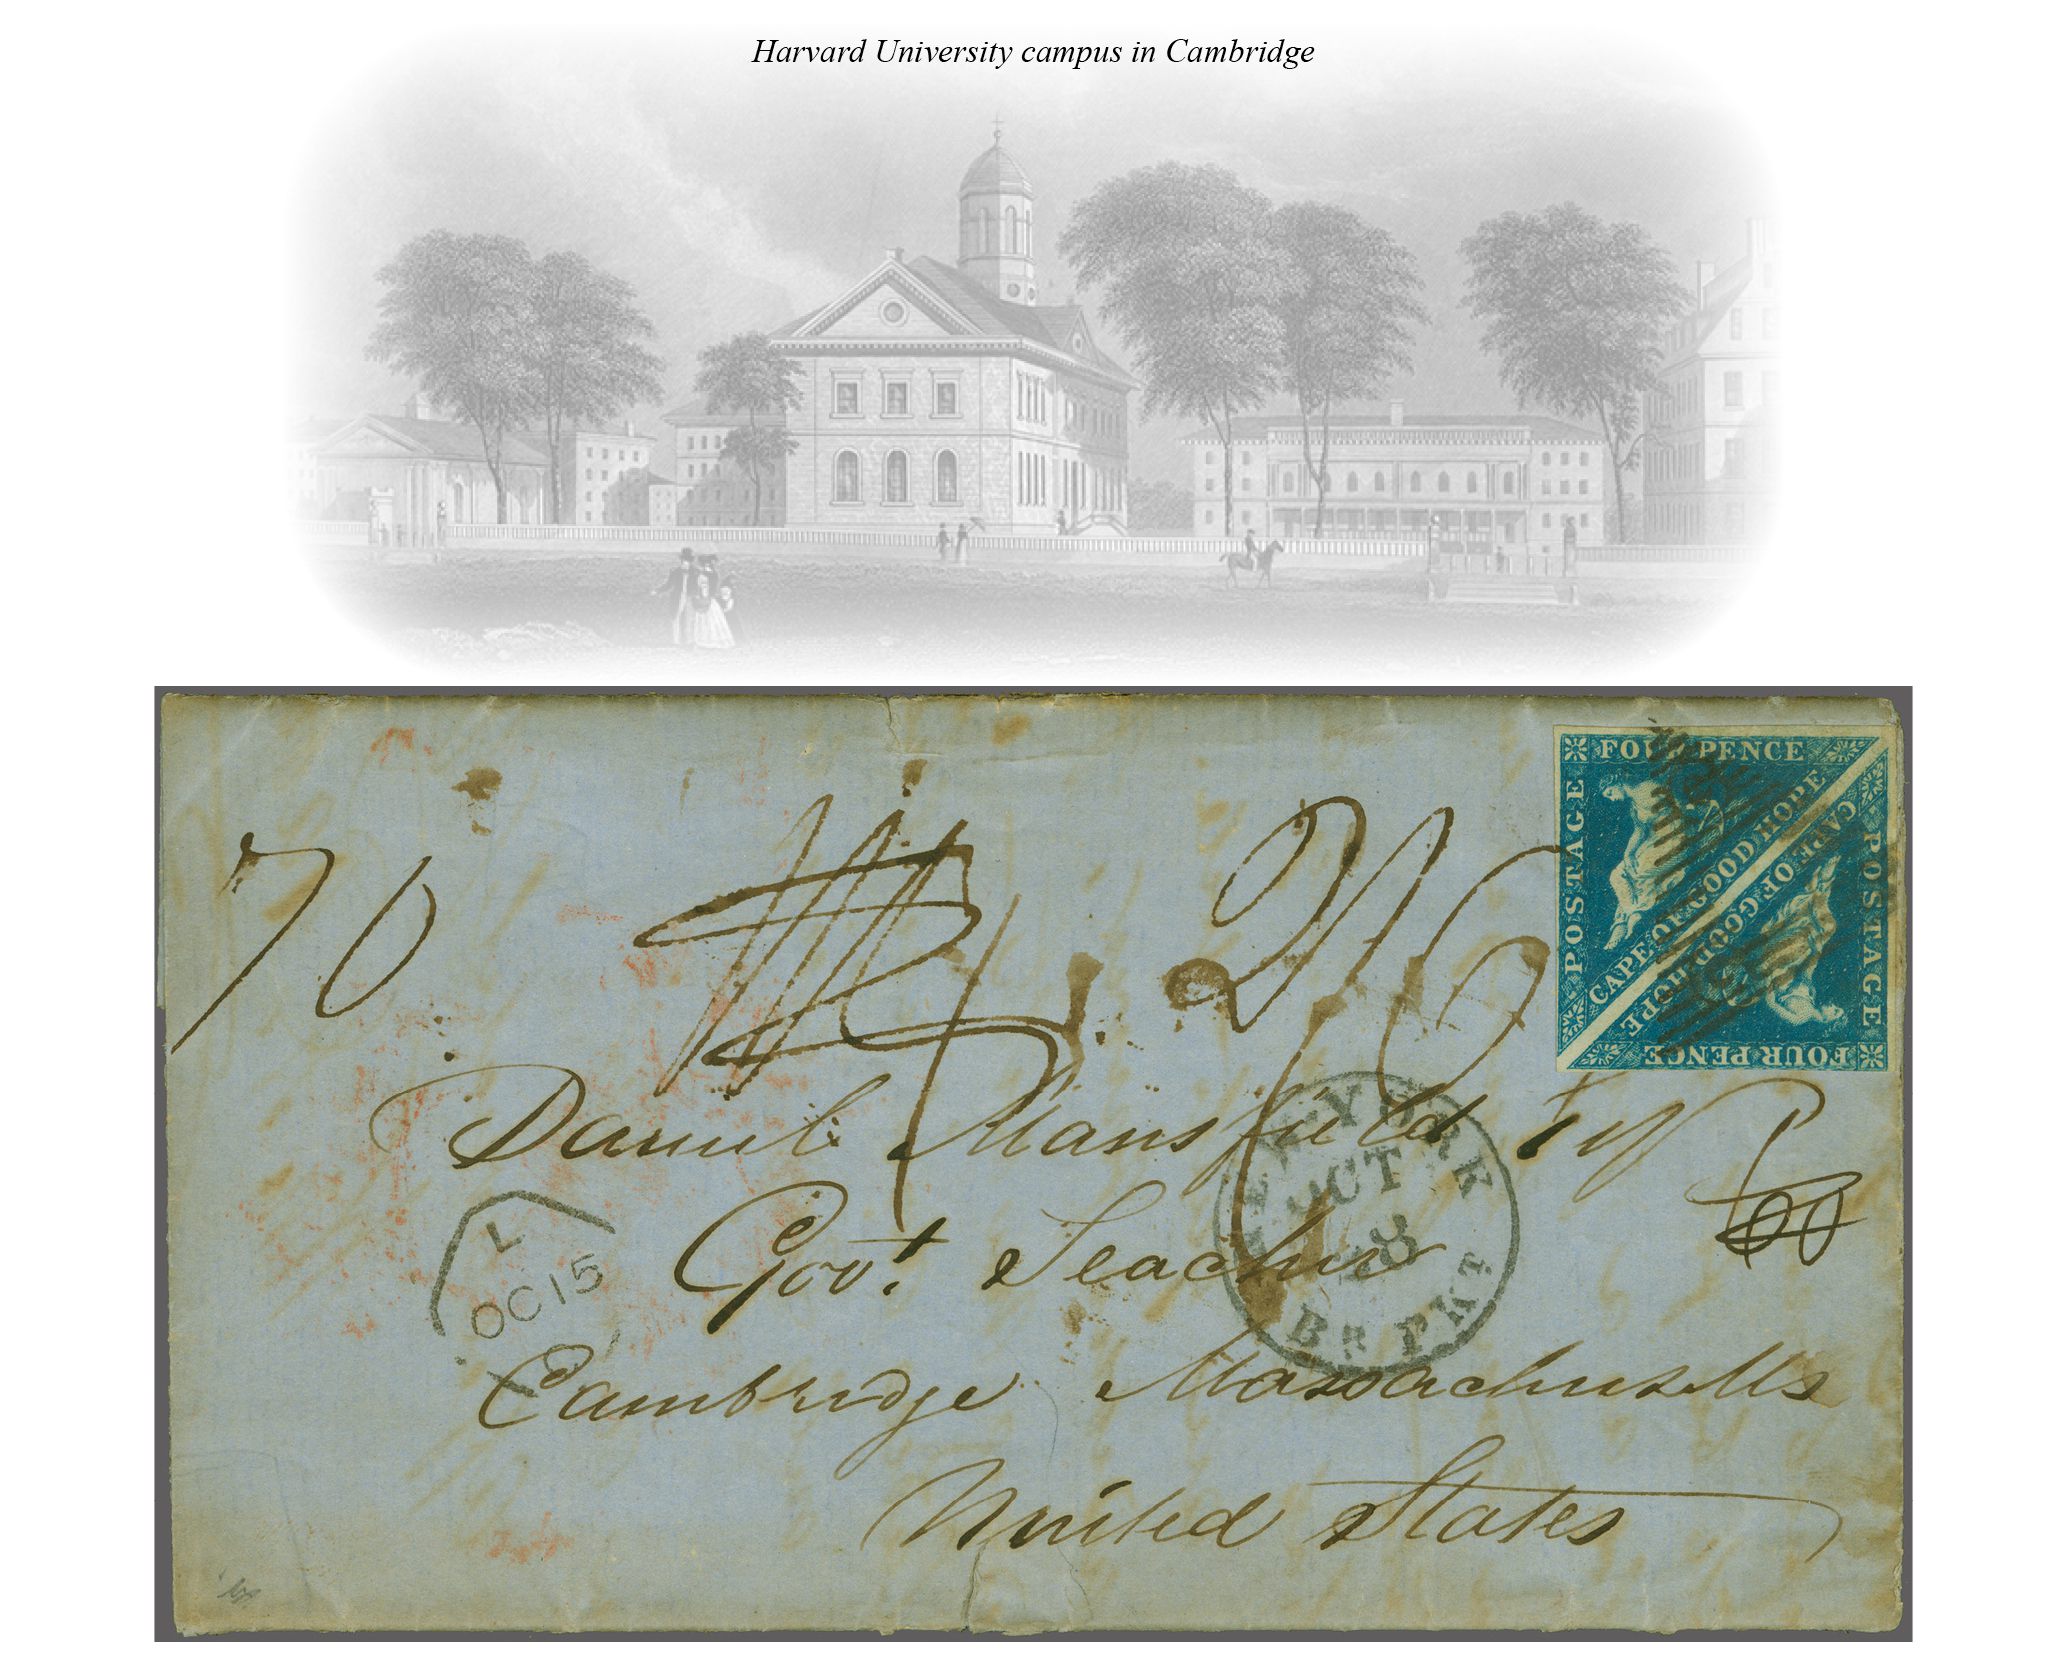 Harvard University campus in Cambridge
FOUR PENCE
POSTAGE
CAPE OF GOOD HOPE
CAPE OF GOOD HOPE
POSTAGE
FOUR PENCE
70
2/6
Daniel Mansfield Esq
NEW YORK
OCT
28
BR PKT
Govt. Teacher
L
OC 15
Cambridge Massachusetts
United States